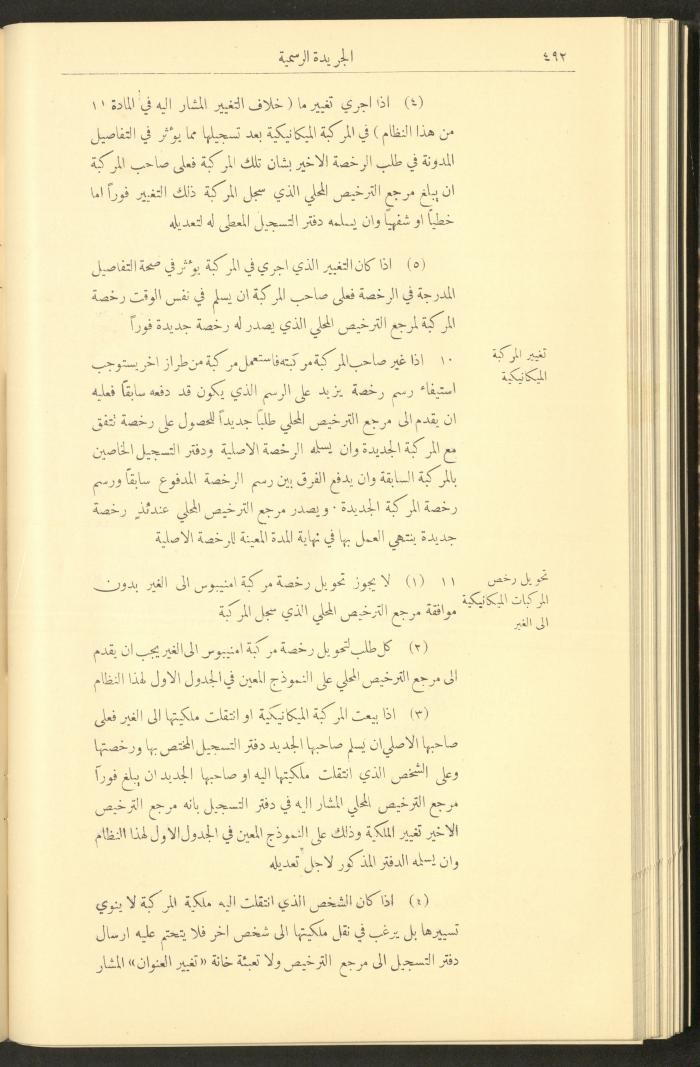 ٤٩٢
الجريدة الرسمية
(٤) اذا اجري تغيير ما ( خلاف التغيير المشار اليه في المادة ١١
من هذا النظام ) في المركبة الميكانيكية بعد تسجيلها مما يؤثر في التفاصيل
المدونة في طلب الرخصة الاخير بشان تلك المركبة فعلى صاحب المركبة
ان يبلغ مرجع الترخيص المحلي الذي سجل المركبة ذلك التغيير فوراً اما
خطياً او شفهياً وان يسلمه دفتر التسجيل المعطى له لتعديله
(٥) اذا كان التغيير الذي اجري في المركبة يؤثر في صحة التفاصيل
المدرجة في الرخصة فعلى صاحب المركبة ان يسلم في نفس الوقت رخصة
المركبة لمرجع الترخيص المحلي الذي يصدر له رخصة جديدة فوراً
تغيير المركبة
الميكانيكية
١٠ اذا غير صاحب المركبة مركبته فاستعمل مركبة من طراز اخر يستوجب
استيفاء رسم رخصة يزيد على الرسم الذي يكون قد دفعه سابقاً فعليه
ان يقدم الى مرجع الترخيص المحلي طلباً جديداً للحصول على رخصة تتفق
مع المركبة الجديدة وان يسلمه الرخصة الاصلية ودفتر التسجيل الخاصين
بالمركبة السابقة وان يدفع الفرق بين رسم الرخصة المدفوع سابقاً ورسم
رخصة المركبة الجديدة . ويصدر مرجع الترخيص المحلي عندئذٍ رخصة
جديدة ينتهي العمل بها في نهاية المدة المعينة للرخصة الاصلية
تحويل رخص
المركبات الميكانيكية
الى الغير
١١ (١) لا يجوز تحويل رخصة مركبة امنيبوس الى الغير بدون
موافقة مرجع الترخيص المحلي الذي سجل المركبة
(٢) كل طلب لتحويل رخصة مركبة امنيبوس الى الغير يجب ان يقدم
الى مرجع الترخيص المحلي على النموذج المعين في الجدول الاول لهذا النظام
(٣) اذا بيعت المركبة الميكانيكية او انتقلت ملكيتها الى الغير فعلى
صاحبها الاصلي ان يسلم صاحبها الجديد دفتر التسجيل المختص بها ورخصتها
وعلى الشخص الذي انتقلت ملكيتها اليه او صاحبها الجديد ان يبلغ فوراً
مرجع الترخيص المحلي المشار اليه في دفتر التسجيل بانه مرجع الترخيص
الاخير تغيير الملكية وذلك على النموذج المعين في الجدول الاول لهذا النظام
وان يسلمه الدفتر المذكور لاجل تعديله
(٤) اذا كان الشخص الذي انتقلت اليه ملكية المركبة لا ينوي
تسييرها بل يرغب في نقل ملكيتها الى شخص اخر فلا يتحتم عليه ارسال
دفتر التسجيل الى مرجع الترخيص ولا تعبئة خانة «تغيير العنوان» المشار